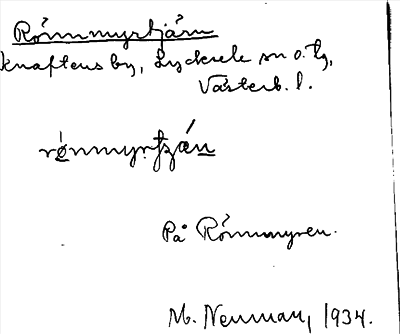 Rönnmyrtjärn
Knaftens by, Lycksele sn o. tg,
Västerb. l.
rönmyrtjän
På Rönnmyren.
M. Neuman, 1934.